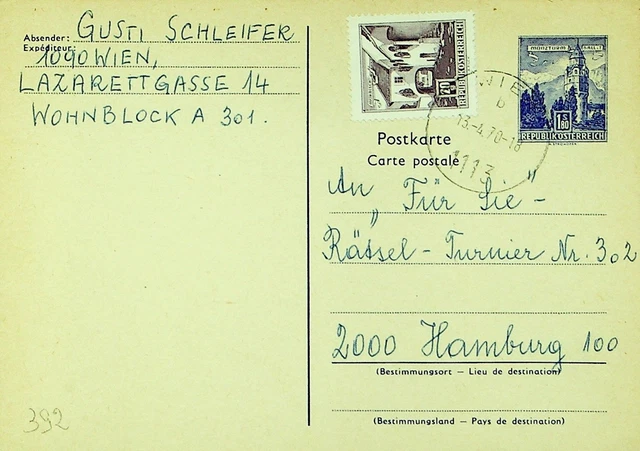 Absender: GUSTI SCHLEIFER
Expéditeur:
1090 WIEN,
LAZARETTGASSE 14
WOHNBLOCK A 301.
70
REPUBLIK ÖSTERREICH
WIEN
13.-4.70-18
1113
MÜNZTURM HALL i.T.
1S80
REPUBLIK ÖSTERREICH
Postkarte
Carte postale
An „Für Sie"-
Rätsel-Turnier Nr. 302
2000 Hamburg 100
(Bestimmungsort – Lieu de destination)
(Bestimmungsland – Pays de destination)
392